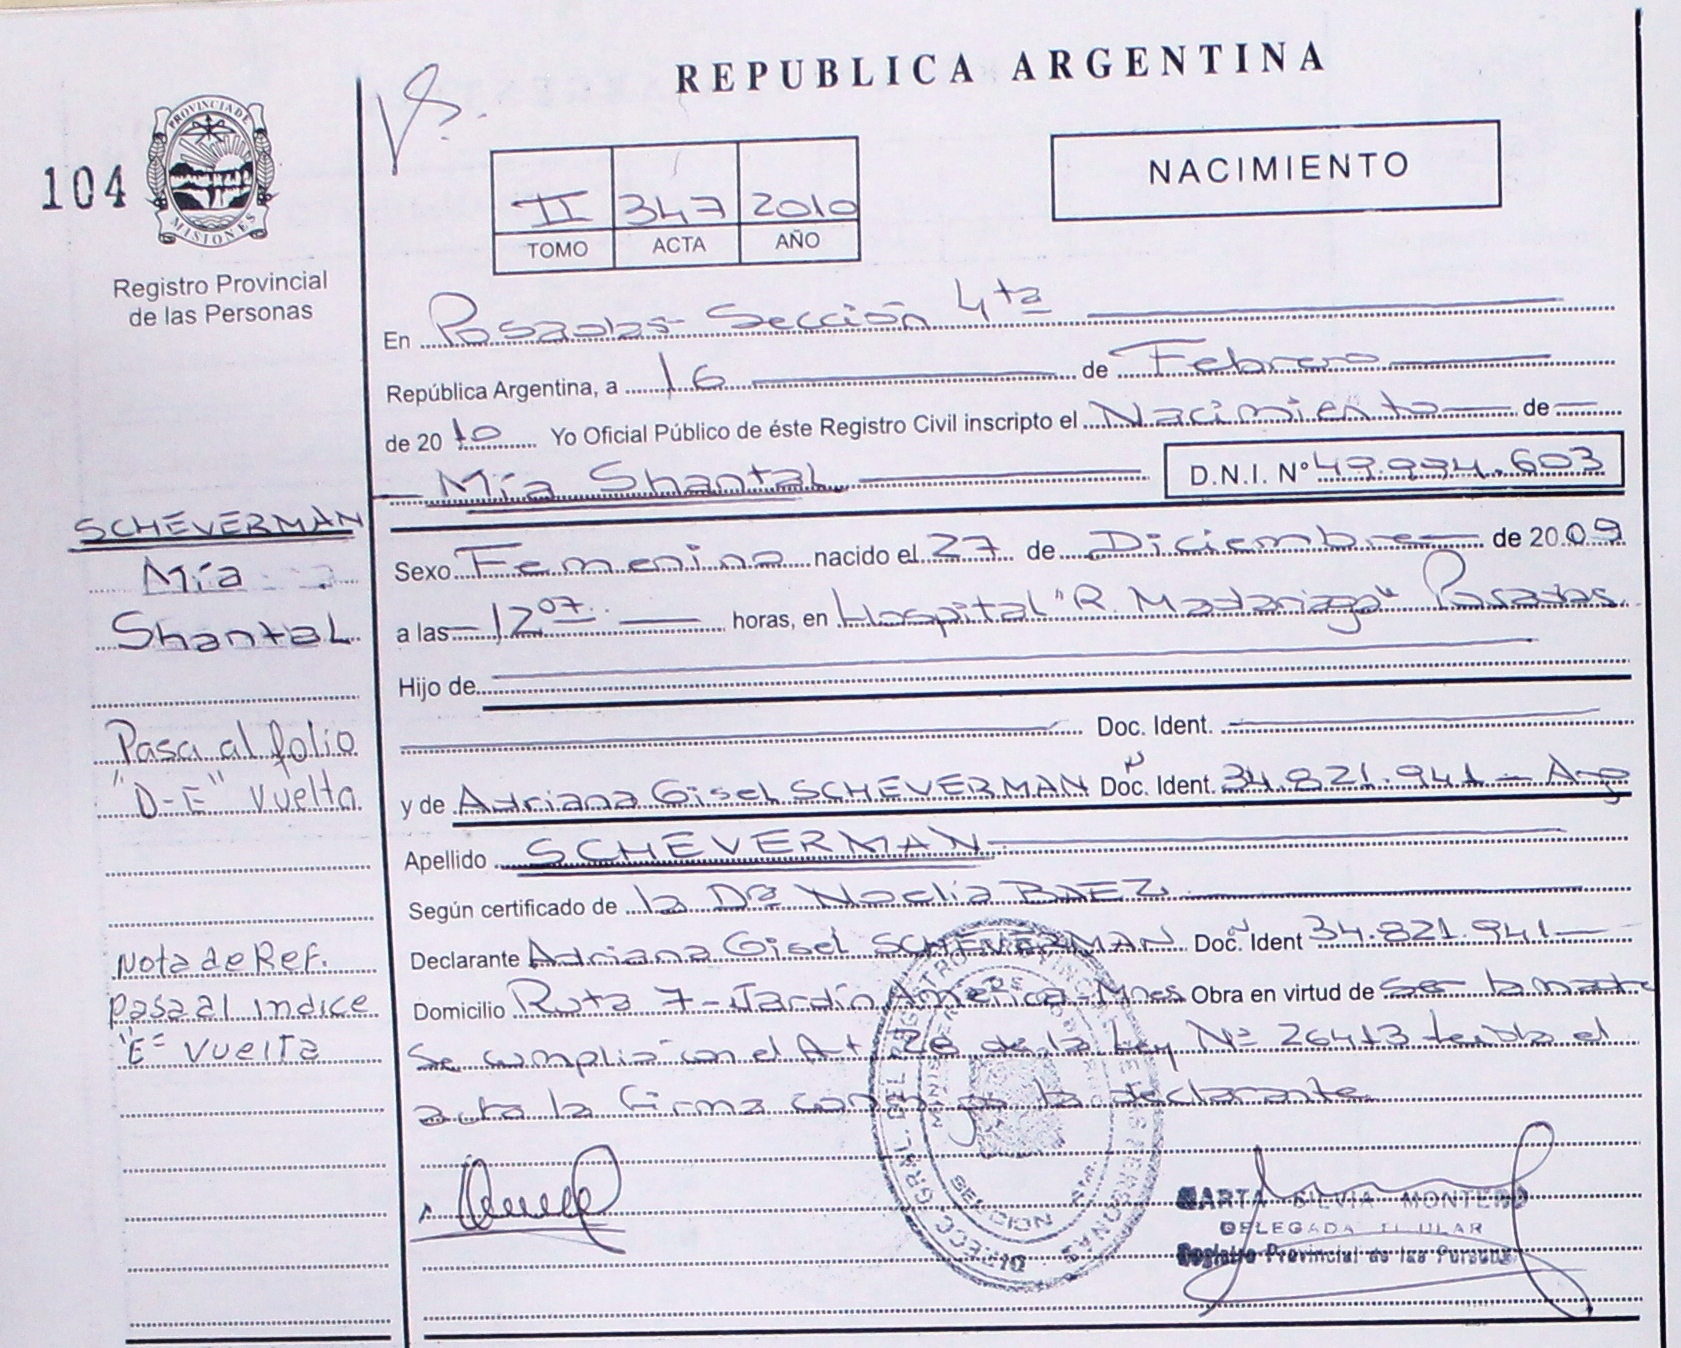 REPUBLICA ARGENTINA
104
PROVINCIA DE
MISIONES
Registro Provincial
de las Personas
NACIMIENTO
II 347 2010
TOMO ACTA AÑO
En Posadas- Sección 4ta
República Argentina, a 16 de Febrero
de 2010 Yo Oficial Público de éste Registro Civil inscripto el Nacimiento de
Mía Shantal D.N.I. N° 49.994.603
SCHEVERMAN
Mía
Shantal
Sexo Femenino nacido el 27 de Diciembre de 2009
a las 12 07 horas, en Hospital "R. Madariaga" Posadas
Hijo de
Doc. Ident.
Pasa al folio
"D-E" Vuelta
y de Adriana Gisel SCHEVERMAN Doc. Ident. 34.821.941 - Arg
Apellido SCHEVERMAN
Según certificado de la Dra Noelia BAEZ
Declarante Adriana Gisel SCHEVERMAN Doc. Ident 34.821.941
Nota de Ref.
Pasa al indice
"E" vuelta
Domicilio Ruta 7- Jardín América - Mnes Obra en virtud de Ser la madre
Se cumplió con el Art. 28 de la Ley Nº 26413 leída el
acta la firma conmigo la declarante
MARTA SILVIA MONTERO
DELEGADA TITULAR
Registro Provincial de las Personas